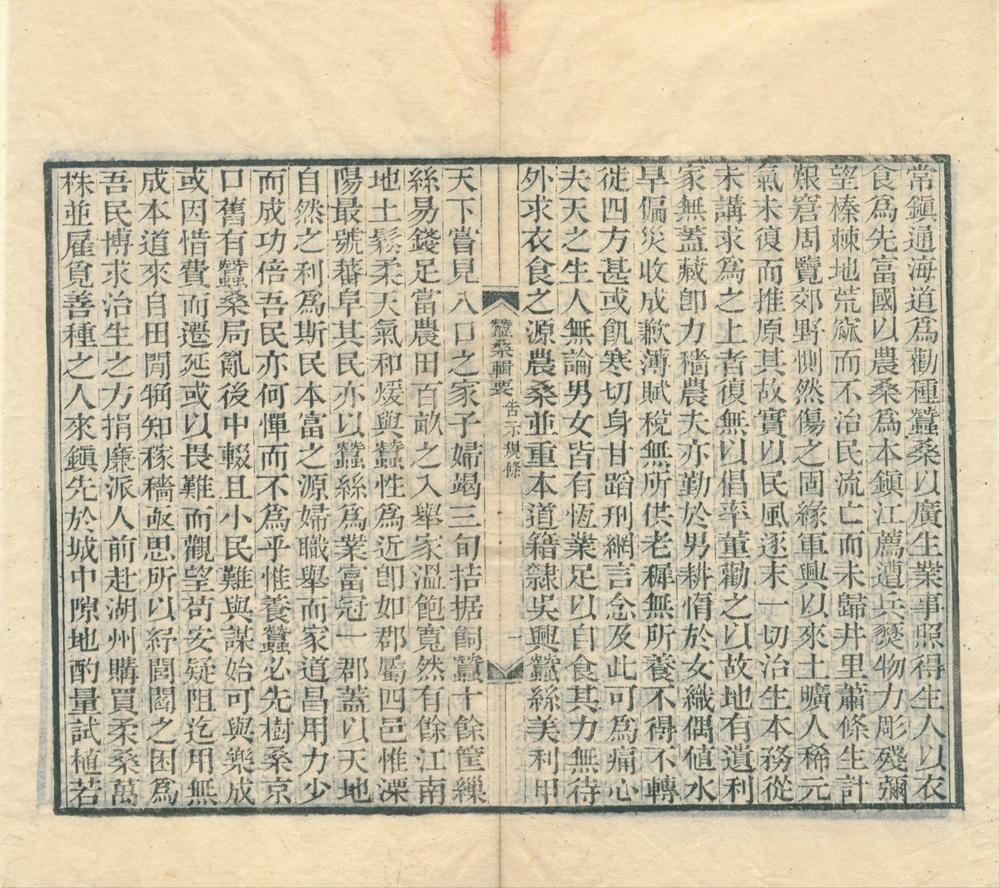 常鎮通海道爲勸種蠶桑以廣生業事照得生人以衣
食爲先富國以農桑爲本鎮江薦遭兵燹物力彫殘彌
望榛棘地荒蕪而不治民流亡而未歸井里蕭條生計
艱窘周覽郊野惻然傷之固緣軍興以來土曠人稀元
氣未復而推原其故實以民風逐末一切治生本務從
未講求爲之上者復無以倡率董勸之以故地有遺利
家無蓋藏卽力穡農夫亦勤於男耕惰於女織偶值水
旱偏災收成歉薄賦稅無所供老穉無所養不得不轉
徙四方甚或飢寒切身甘蹈刑網言念及此可爲痛心
夫天之生人無論男女皆有恆業足以自食其力無待
外求衣食之源農桑並重本道籍隸吳興蠶絲美利甲
蠶桑輯要 告示規條 一
天下嘗見八口之家子婦竭三旬拮据飼蠶十餘筐繅
絲易錢足當農田百畝之入舉家溫飽寬然有餘江南
地土鬆柔天氣和煖與蠶性爲近卽如郡屬四邑惟溧
陽最號蕃阜其民亦以蠶絲爲業富冠一郡蓋以天地
自然之利爲斯民本富之源婦職舉而家道昌用力少
而成功倍吾民亦何憚而不爲乎惟養蠶必先樹桑京
口舊有蠶桑局亂後中輟且小民難與謀始可與樂成
或因惜費而遷延或以畏難而觀望苟安疑阻迄用無
成本道來自田閒稍知稼穡亟思所以紓閭閻之困爲
吾民博求治生之方捐廉派人前赴湖州購買柔桑萬
株並雇覓善種之人來鎮先於城中隙地酌量試植若